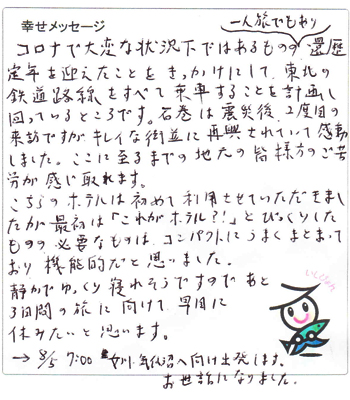 幸せメッセージ
一人旅でもあり
コロナで大変な状況下ではあるものの還暦
定年を迎えたことをきっかけにして、東北の
鉄道路線をすべて乗車することを計画し
図っているところです。石巻は震災後、2度目の
来訪ですがキレイな街並に再興されていて感動
しました。ここに至るまでの地元の皆様方のご苦
労が感じ取れます。
こちらのホテルは初めて利用させていただきまし
たが最初は「これがホテル?!」とびっくりした
ものの必要なものは、コンパクトにうまくまとまって
おり機能的だと思いました。
静かでゆっくり寝れそうですのであと
3日間の旅に向けて早目に
休みたいと思います。
→ 8/5 7:00 女川、気仙沼へ向け出発します。
お世話になりました。